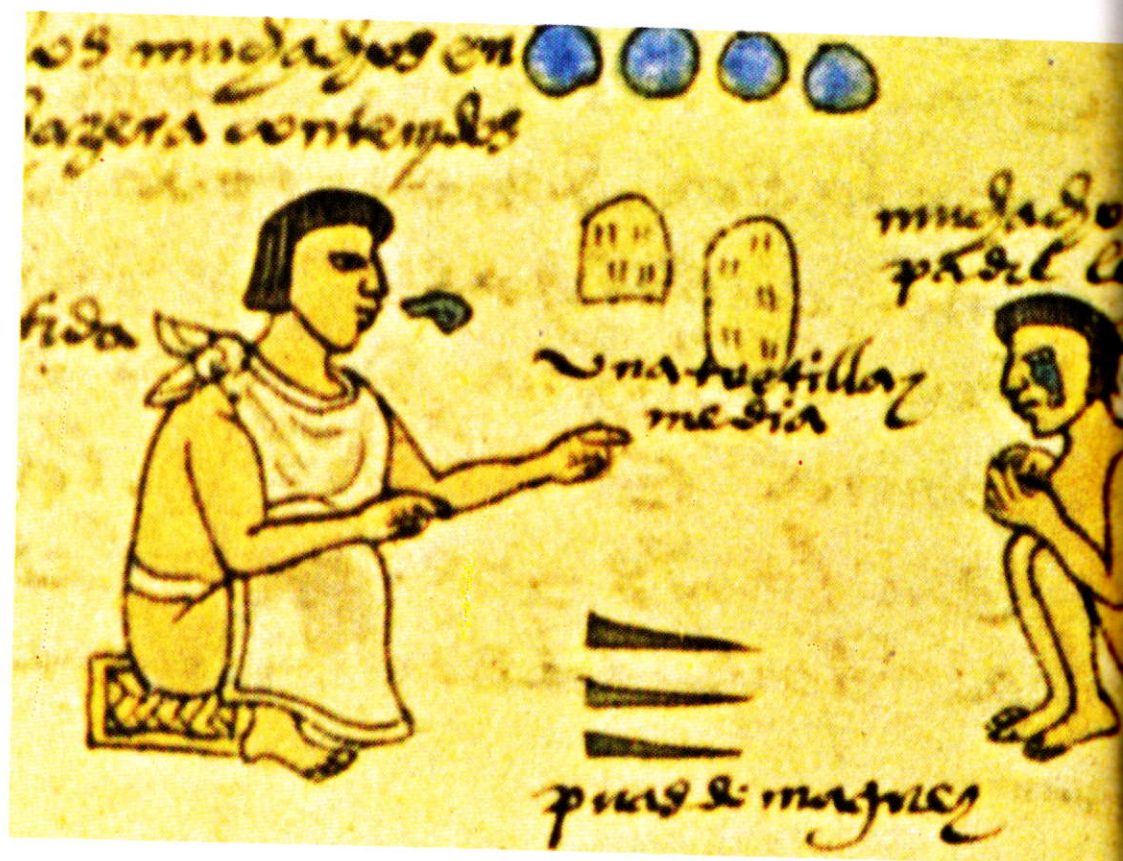 os muchachos en
hazera contenydos
muchacho
tida
vna tortilla y
media
puas de maguey